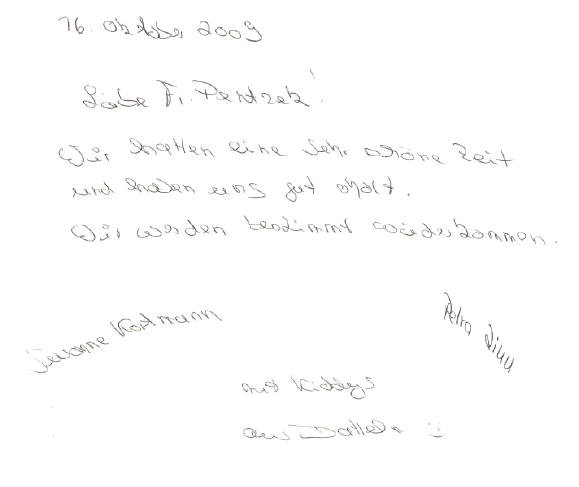 16. Oktober 2009
Liebe Fr. Pentzek!
Wir hatten eine sehr schöne Zeit
und haben uns gut erholt.
Wir werden bestimmt wiederkommen.
Susanne Kortmann
Petra
mit Kiddys
aus Datteln :)